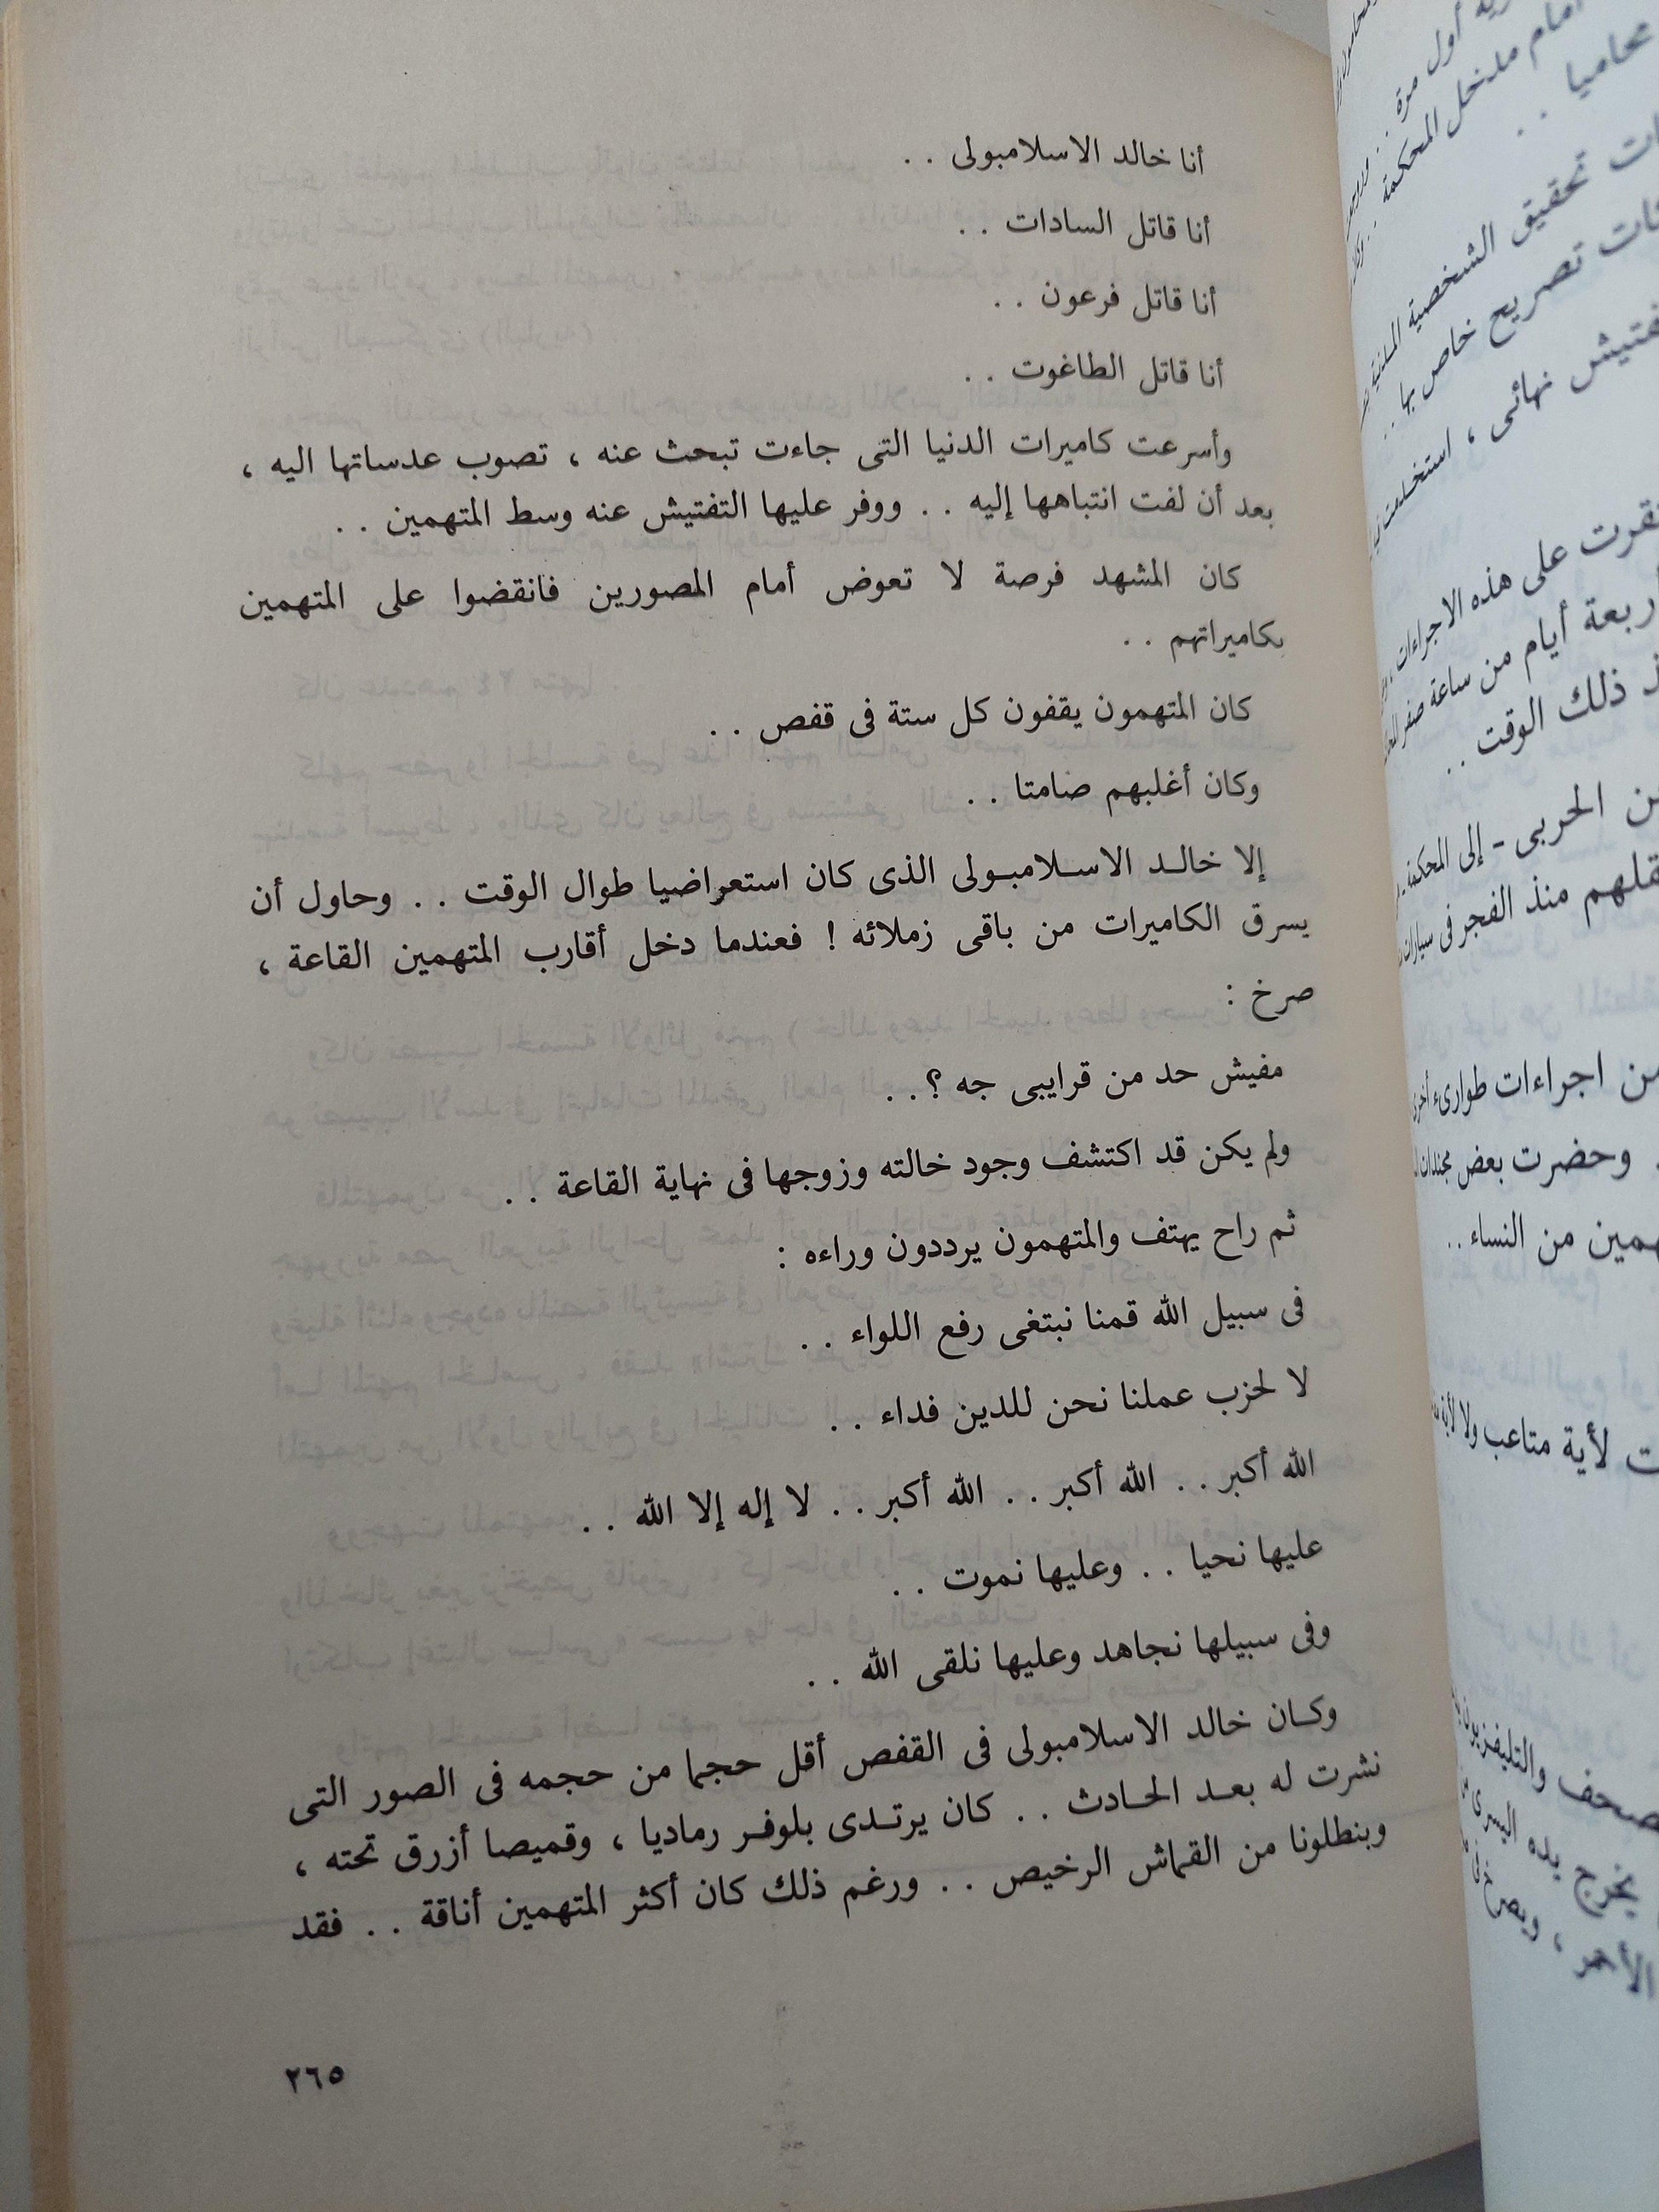 أنا خالد الاسلامبولى . .
أنا قاتل السادات . .
أنا قاتل فرعون . .
أنا قاتل الطاغوت . .
وأسرعت كاميرات الدنيا التى جاءت تبحث عنه ، تصوب عدساتها اليه ،
بعد أن لفت انتباهها إليه . . ووفر عليها التفتيش عنه وسط المتهمين . .
كان المشهد فرصة لا تعوض أمام المصورين فانقضوا على المتهمين
بكاميراتهم . .
كان المتهمون يقفون كل ستة فى قفص . .
وكان أغلبهم صامتا . .
إلا خالد الاسلامبولى الذى كان استعراضيا طوال الوقت . . وحاول أن
يسرق الكاميرات من باقى زملائه ! فعندما دخل أقارب المتهمين القاعة ،
صرخ :
مفيش حد من قرايبى جه ؟ . .
ولم يكن قد اكتشف وجود خالته وزوجها فى نهاية القاعة . .
ثم راح يهتف والمتهمون يرددون وراءه :
فى سبيل الله قمنا نبتغى رفع اللواء . .
لا لحزب عملنا نحن للدين فداء . .
الله أكبر . . الله أكبر . . الله أكبر . . لا إله إلا الله . .
عليها نحيا . . وعليها نموت . .
وفى سبيلها نجاهد وعليها نلقى الله . .
وكان خالد الاسلامبولى فى القفص أقل حجما من حجمه فى الصور التى
نشرت له بعد الحادث . . كان يرتدى بلوفر رماديا ، وقميصا أزرق تحته ،
وبنطلونا من القماش الرخيص . . ورغم ذلك كان أكثر المتهمين أناقة . . فقد
٢٦٥
أول مرة . .
أمام مدخل المحكمة . .
محاميا . .
تحقيق الشخصية
تصريح خاص بها . .
نهائى ،
على هذه الاجراءات
أيام من ساعة صفر
ذلك الوقت . .
الحربى - إلى المحكمة
منذ الفجر فى
من اجراءات طوارىء
وحضرت بعض
من النساء . .
لأية متاعب ولا
والتليفزيون
يخرج يده اليسرى